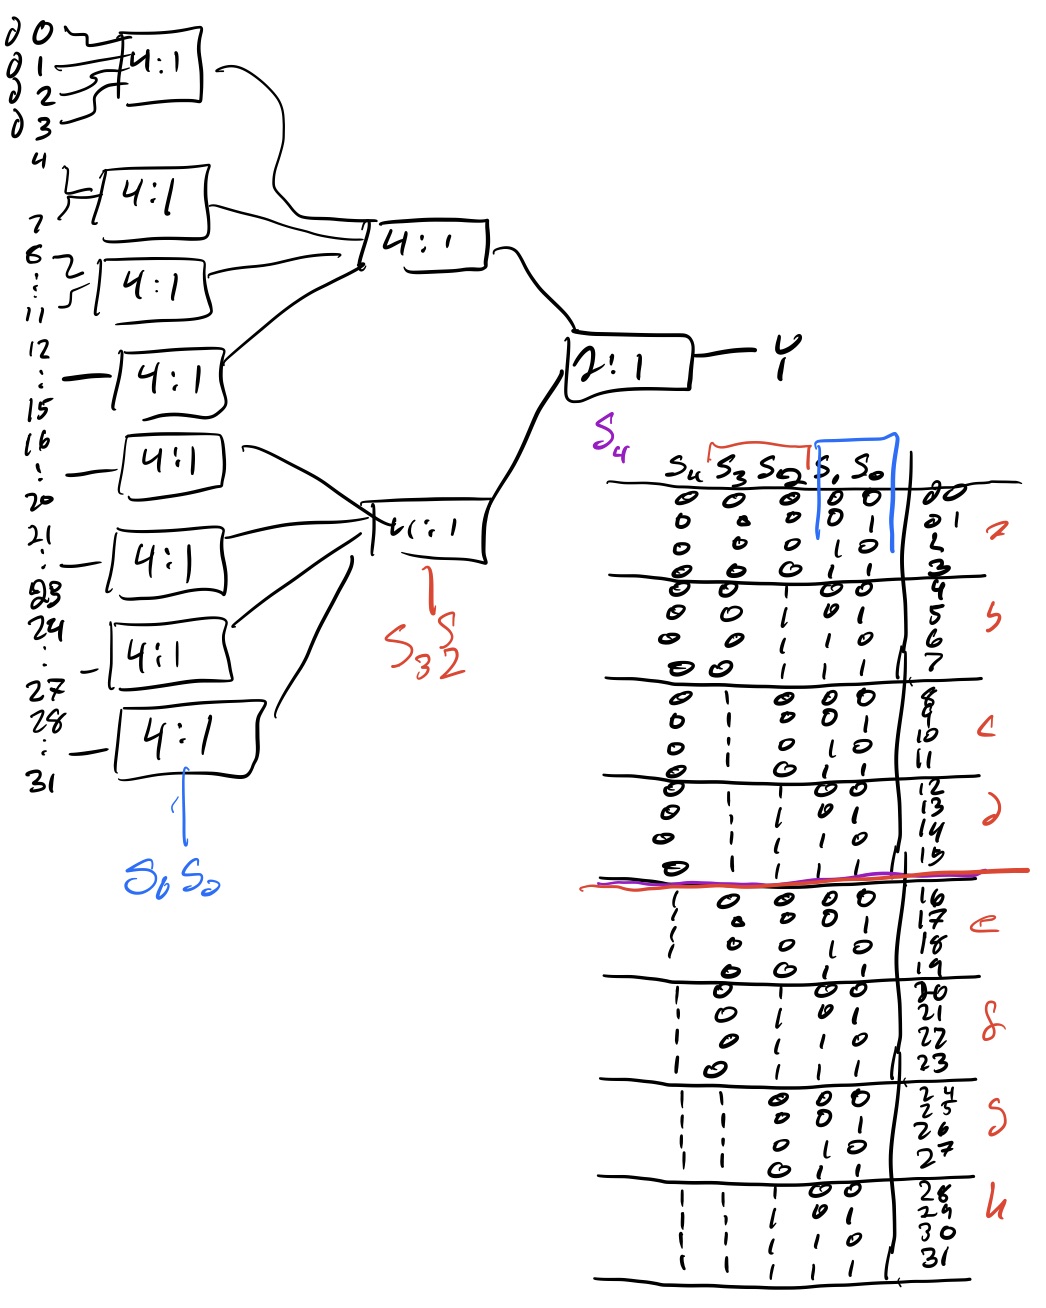 d 0
d 1
d 2
d 3
4:1
4
7
4:1
8
⋮
11
4:1
12
⋮
15
4:1
16
⋮
20
4:1
21
⋮
23
4:1
24
⋮
27
4:1
28
⋮
31
4:1
S1 S0
4:1
4:1
S3 S2
2:1
S4
Y
S4 S3 S2 S1 S0
0 0 0 0 0 d0
0 0 0 0 1 d1
0 0 0 1 0 2
0 0 0 1 1 3
a
0 0 1 0 0 4
0 0 1 0 1 5
0 0 1 1 0 6
0 0 1 1 1 7
b
0 1 0 0 0 8
0 1 0 0 1 9
0 1 0 1 0 10
0 1 0 1 1 11
c
0 1 1 0 0 12
0 1 1 0 1 13
0 1 1 1 0 14
0 1 1 1 1 15
d
1 0 0 0 0 16
1 0 0 0 1 17
1 0 0 1 0 18
1 0 0 1 1 19
e
1 0 1 0 0 20
1 0 1 0 1 21
1 0 1 1 0 22
1 0 1 1 1 23
f
1 1 0 0 0 24
1 1 0 0 1 25
1 1 0 1 0 26
1 1 0 1 1 27
g
1 1 1 0 0 28
1 1 1 0 1 29
1 1 1 1 0 30
1 1 1 1 1 31
h